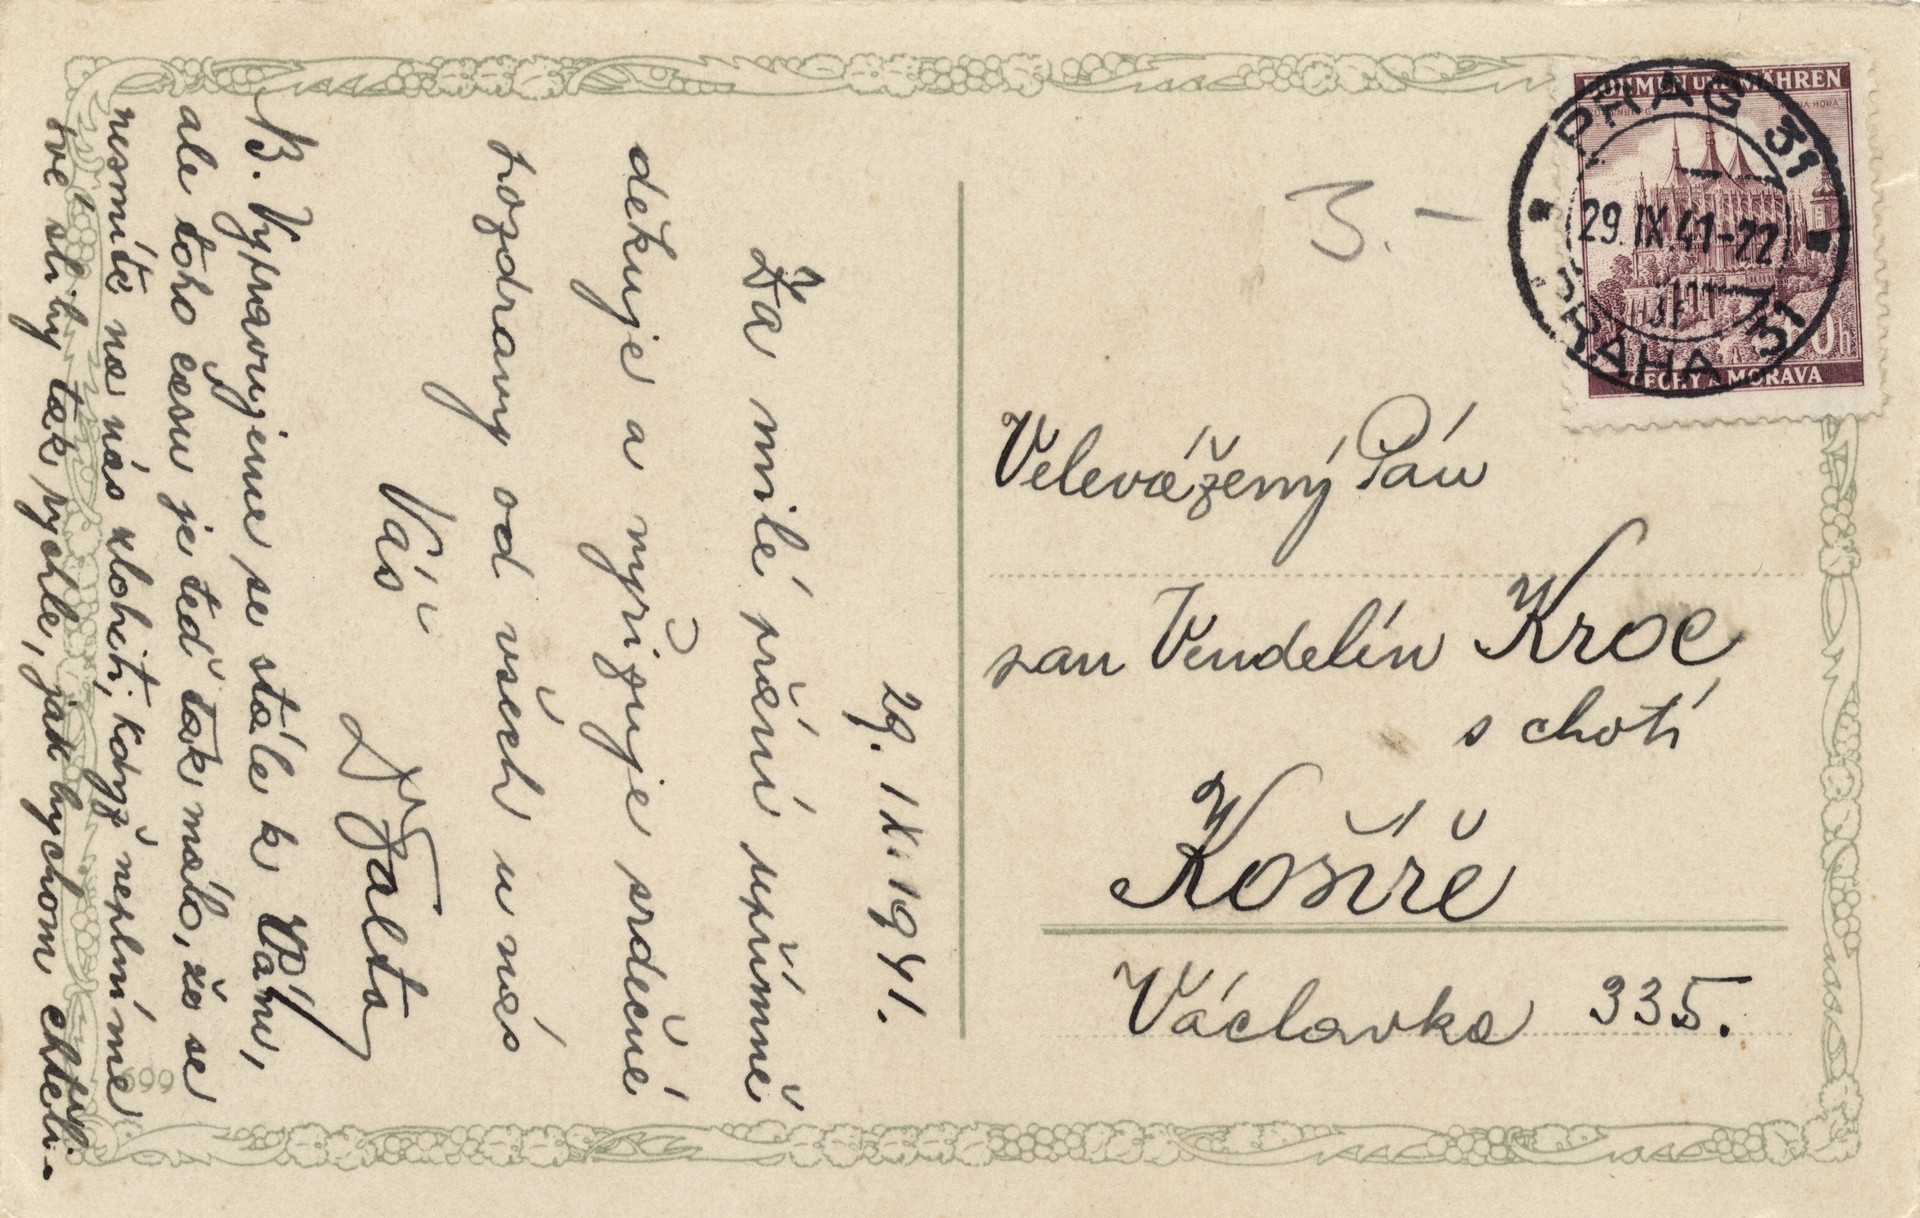 29. IX. 1941.
Za milé přání upřímně
děkuje a vyřizuje srdečné
pozdravy od všech u nás
Váš
Falta
B. Vypravujeme se stále k Vám,
ale toho času je teď tak málo, že se
nesmíte na nás zlobiti, když neplníme
své sliby tak rychle, jak bychom chtěli.
699
3.-
BÖHMEN UND MÄHREN
KUTNÁ HORA
ČECHY A MORAVA
PRAG 31
29.IX.41-22
PRAHA 31
Velevážený Pán
pan Vendelín Kroc
s chotí
Košíře
Václavka 335.